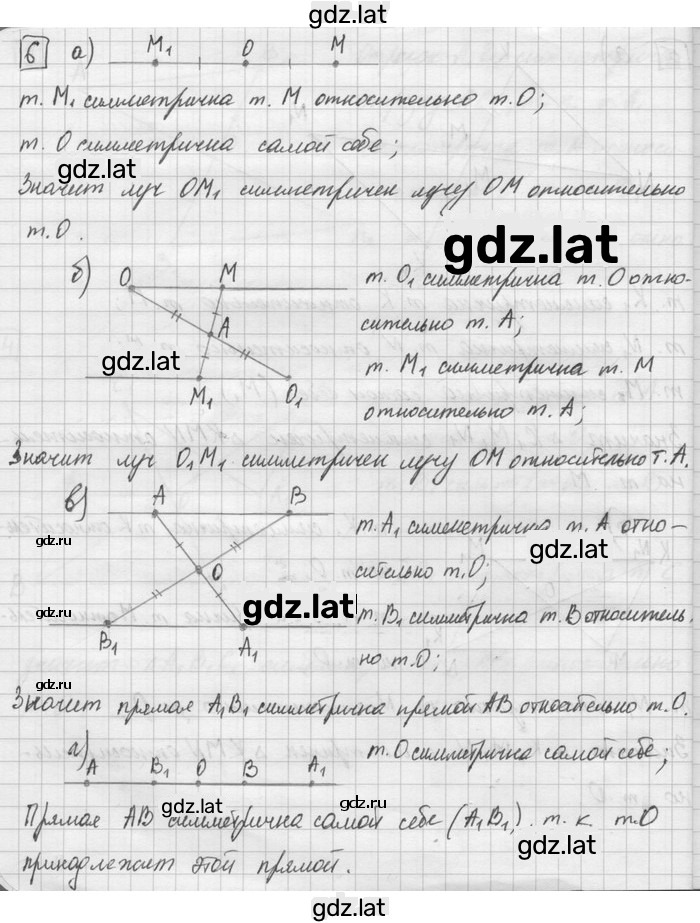 gdz.lat
6 а) M₁ O M
т. M₁ симметрична т. M относительно т. O;
т. O симметрична самой себе;
gdz.lat
Значит луч OM₁ симметричен лучу OM относительно
т. O.
gdz.lat
б) O M
A
M₁ O₁
gdz.lat
т. O₁ симметрична т. O отно-
сительно т. A;
т. M₁ симметрична т. M
относительно т. A;
Значит луч O₁M₁ симметричен лучу OM относительно т. A.
в) A B
O
B₁ A₁
gdz.ru
gdz.ru
gdz.lat
т. A₁ симметрична т. A отно-
сительно т. O;
т. B₁ симметрична т. B относитель-
но т. O;
gdz.ru
Значит прямая A₁B₁ симметрична прямой AB относительно т. O.
г) A B₁ O B A₁
т. O симметрична самой себе;
gdz.lat
gdz.ru
Прямая AB симметрична самой себе (A₁B₁), т. к. т. O
принадлежит этой прямой.
gdz.lat
gdz.lat